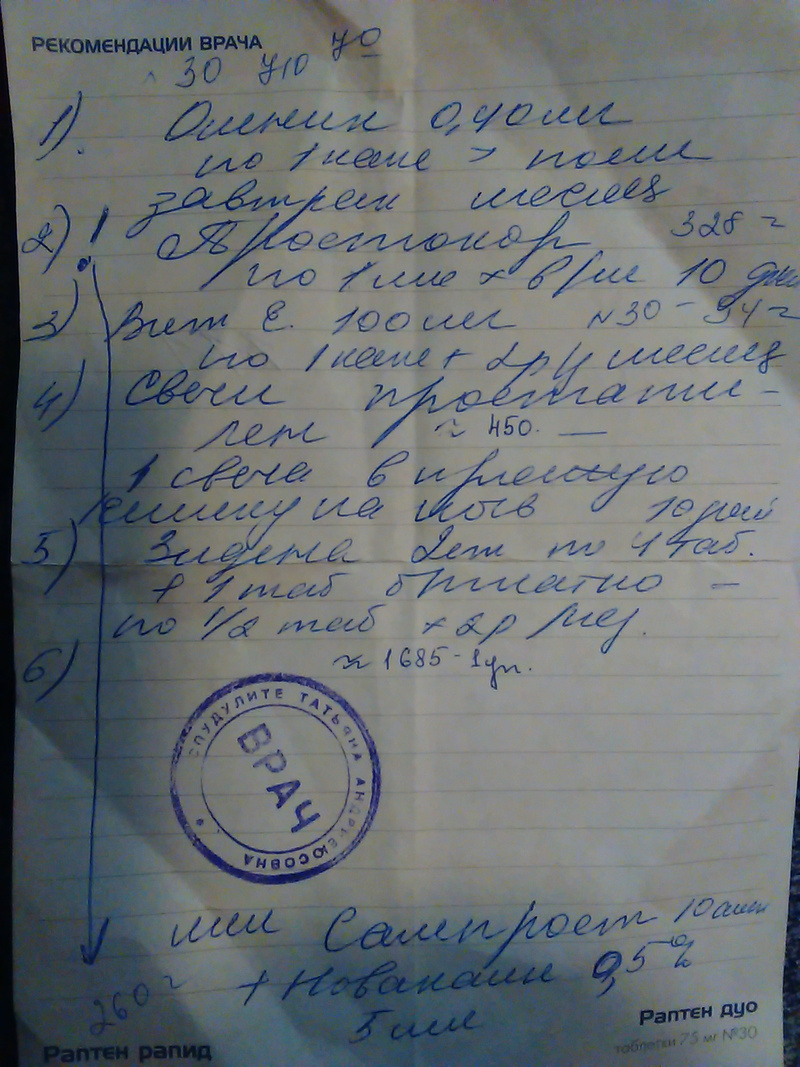 РЕКОМЕНДАЦИИ ВРАЧА
30 710 70
1). Омник 0,40мг
по 1 капс после
завтрак месяц
2)! Простакор 328
по 1 мл × в/м 10 дней
3) Вит Е. 100мг №30 - 94
по 1 капс × 2р месяц
4) Свечи простати-
лен ~ 450. —
1 свеча в прямую
кишку на ночь 10 дней
5) Зидена 2 по 1 таб.
+ 1 таб бесплатно —
по 1/2 таб × 2р/нед.
6) ≈ 1685 - 1уп.
СПУДУЛИТЕ ТАТЬЯНА АНДРЬЕЮСОВНА
ВРАЧ
или Сампрост 10амп
+ Новокаин 0,5%
260 5мл
Раптен дуо
таблетки 75 мг №30
Раптен рапид